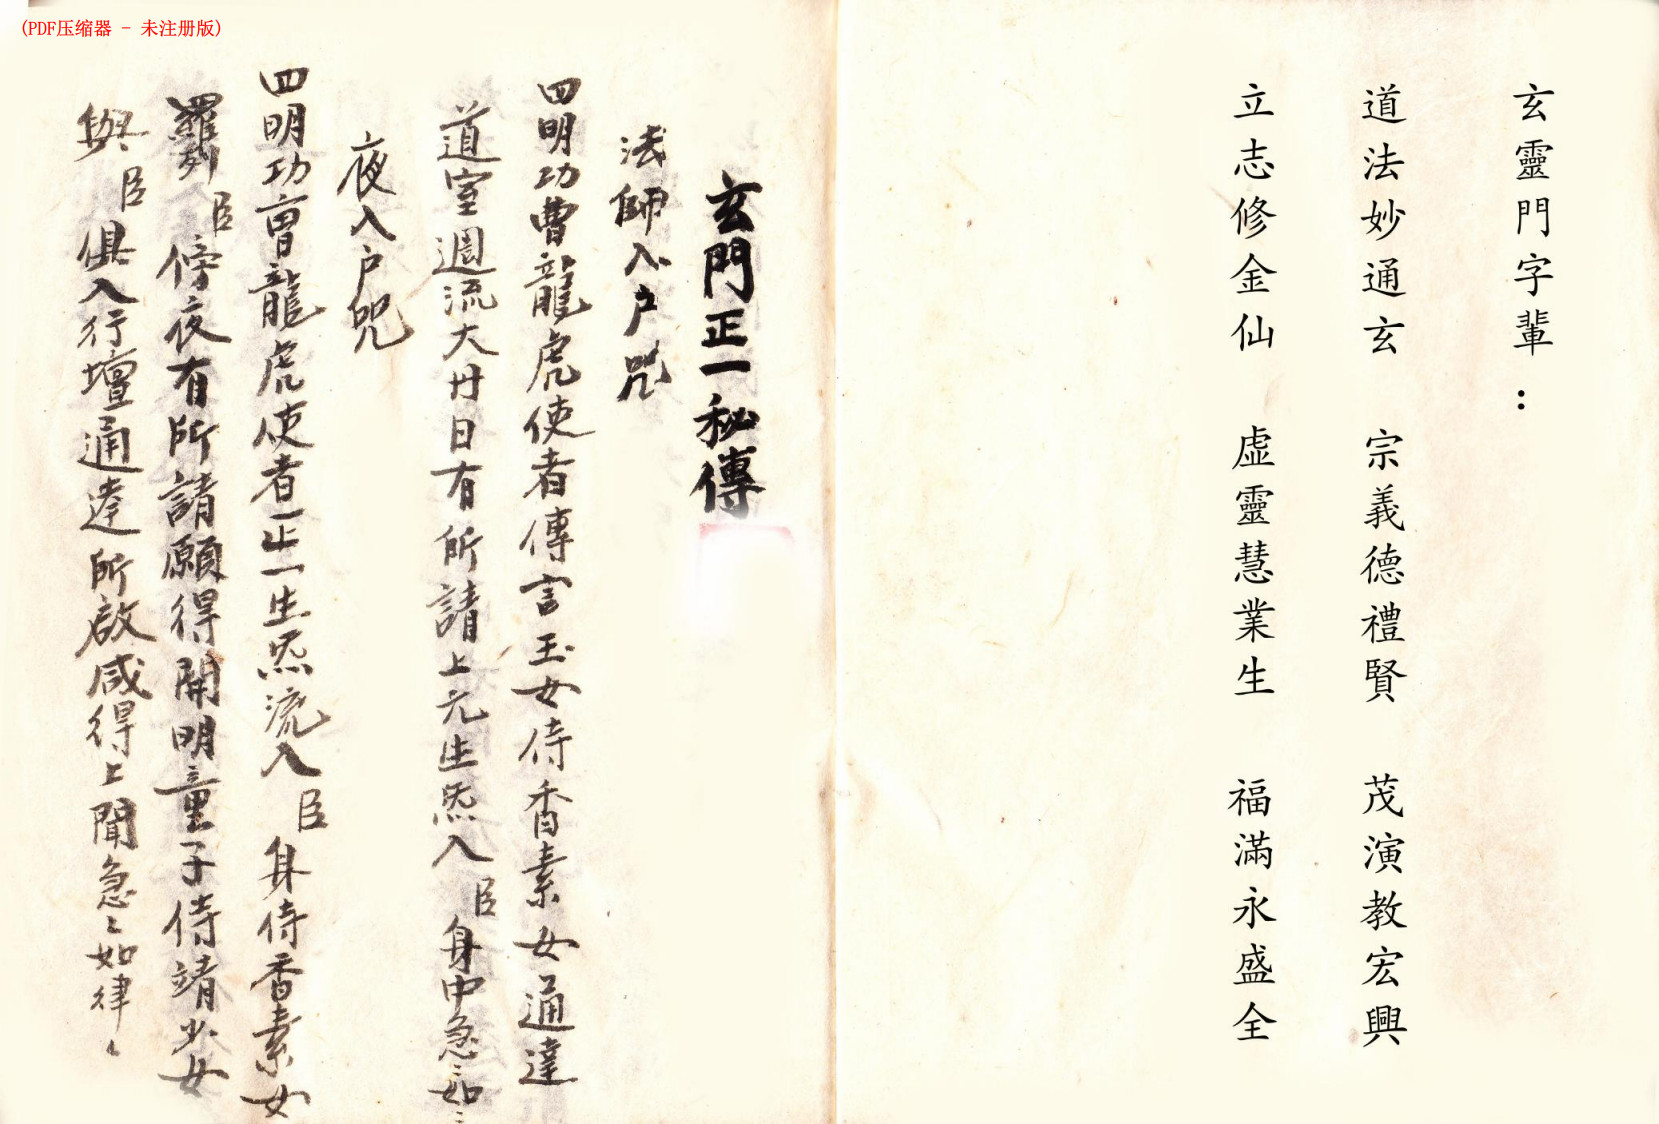 (PDF压缩器 - 未注册版)
玄靈門字輩：
道法妙通玄 宗義德禮賢 茂演教宏興
立志修金仙 虛靈慧業生 福滿永盛全
玄門正一秘傳
法師入户咒
四明功曹龍虎使者傳言玉女侍香素女通達
道室週流大廿日有所請上元生炁入臣身中急〻如〻
夜入户咒
四明功曹龍虎使者正一生炁流入臣身侍香素女
羅列臣傍夜有所請願得開明童子侍靖少女
與臣俱入行壇通達所啟咸得上聞急〻如律〻